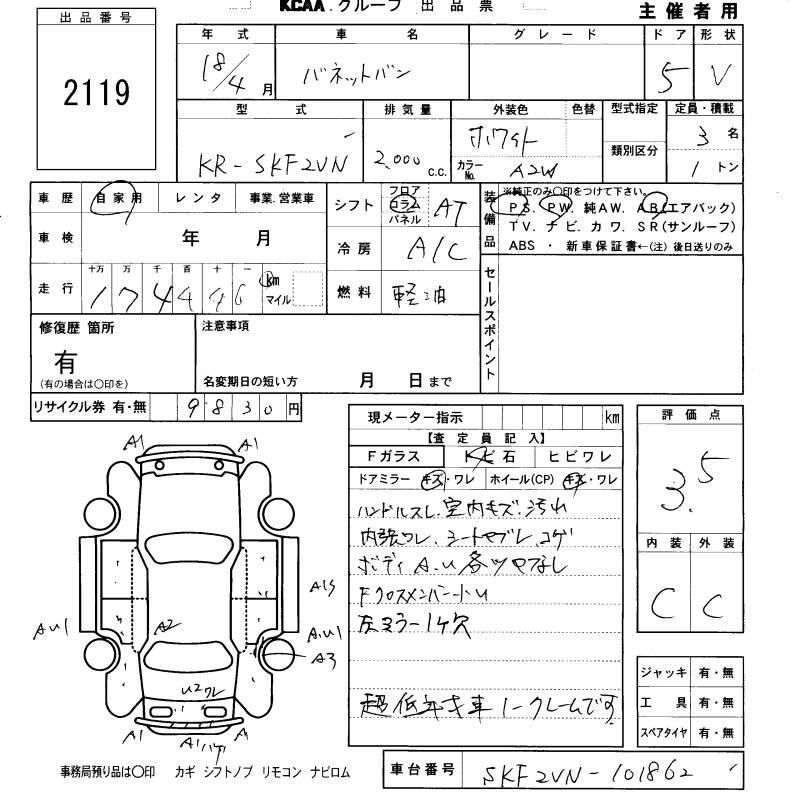 KCAA.グループ 出品票
主催者用
出品番号
2119
年式 車名 グレード ドア 形状
18/4月 バネットバン 5 V
型式 排気量 外装色 色替 型式指定 定員・積載
KR-SKF2VN 2,000 c.c. ホワイト 3名
カラーNo. A2W 類別区分 1トン
車歴 自家用 レンタ 事業.営業車
シフト フロア コラム パネル AT
装備品 ※純正のみ〇印をつけて下さい。
PS. PW. 純AW. AB(エアバック)
TV. ナビ. カワ. SR(サンルーフ)
ABS ・ 新車保証書←(注) 後日送りのみ
車検 年 月
冷房 A/C
走行 十万 万 千 百 十 一
174446 km マイル
燃料 軽油
セールスポイント
修復歴 箇所
有
(有の場合は〇印を)
注意事項
名変期日の短い方 月 日まで
リサイクル券 有・無 9830円
現メーター指示 km
【査定員記入】
Fガラス トビ石 ヒビワレ
ドアミラー キズ・ワレ ホイール(CP) キズ・ワレ
ハンドルスレ.室内キズ.汚れ
内張ワレ.シートヤブレ.コゲ
ボディA.U各ツヤなし
Fクロスメンバー小U
左ミラー1ケ欠
超低年式車ノークレームです
評価点
3.5
内装 外装
C C
A1 A1
A1S
AU1 A2 A.U1
A3
U2ワレ
A1 A1ハゲ A1
ジャッキ 有・無
工具 有・無
スペアタイヤ 有・無
事務局預り品は〇印 カギ シフトノブ リモコン ナビロム
車台番号 SKF2VN-101862